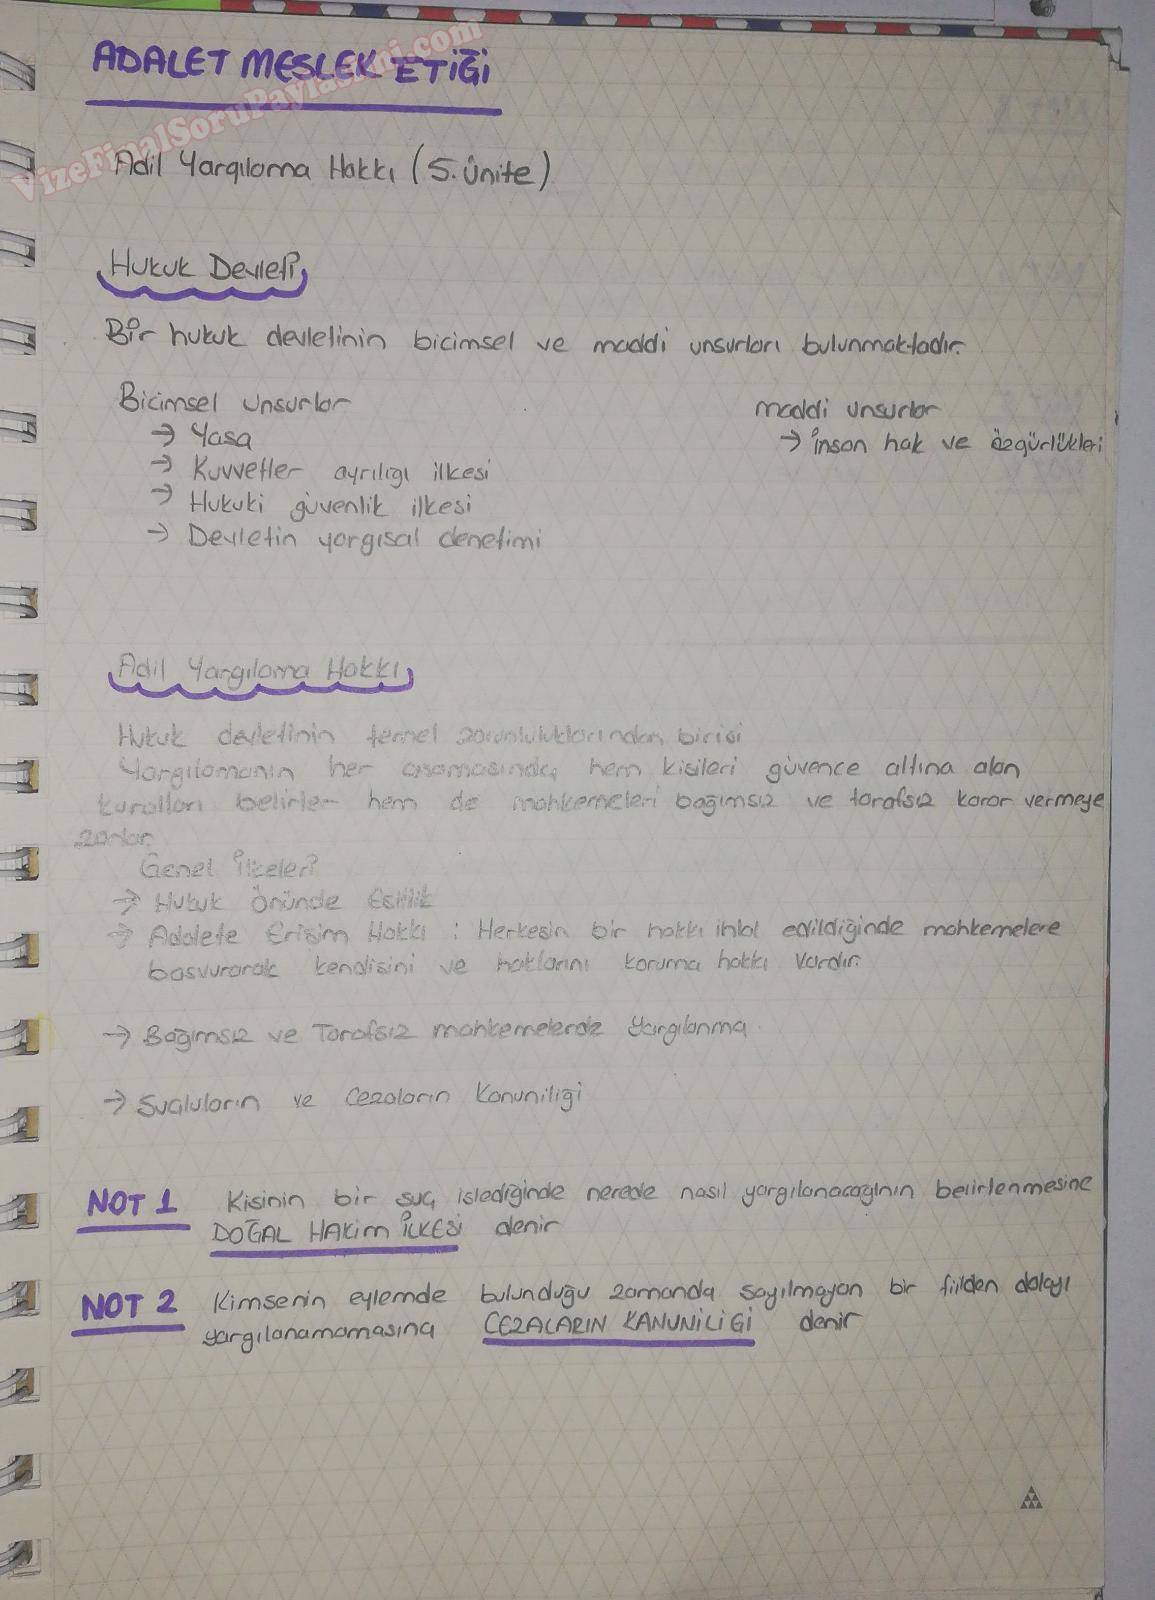 ADALET MESLEK ETİĞİ
VizeFinalSoruPaylasimi.com
Adil Yargılama Hakkı (5. Ünite)
Hukuk Devleti
Bir hukuk devletinin bicimsel ve maddi unsurları bulunmaktadır.
Bicimsel Unsurlar
maddi unsurlar
→ Yasa
→ İnsan hak ve özgürlükleri
→ Kuvvetler ayrılığı ilkesi
→ Hukuki güvenlik ilkesi
→ Devletin yargısal denetimi
Adil Yargılama Hakkı
Hukuk devletinin temel zorunluluklarından birisi
Yargılamanın her asamasında, hem kisileri güvence altına alan
kuralları belirler hem de mahkemeleri bağımsız ve tarafsız karar vermeye
zorlar.
Genel İlkeleri
→ Hukuk Önünde Esitlik
→ Adalete Erisim Hakkı : Herkesin bir hakkı ihlal edildiğinde mahkemelere
basvurarak kendisini ve haklarını koruma hakkı vardır.
→ Bağımsız ve Tarafsız mahkemelerde Yargılanma
→ Suçluların ve Cezaların Kanuniliği
NOT 1 Kisinin bir suç islediğinde nerede nasıl yargılanacağının belirlenmesine
DOĞAL HAKİM İLKESİ denir
NOT 2 Kimsenin eylemde bulunduğu zamanda sayılmayan bir fiilden dolayı
yargılanamamasına CEZALARIN KANUNİLİĞİ denir